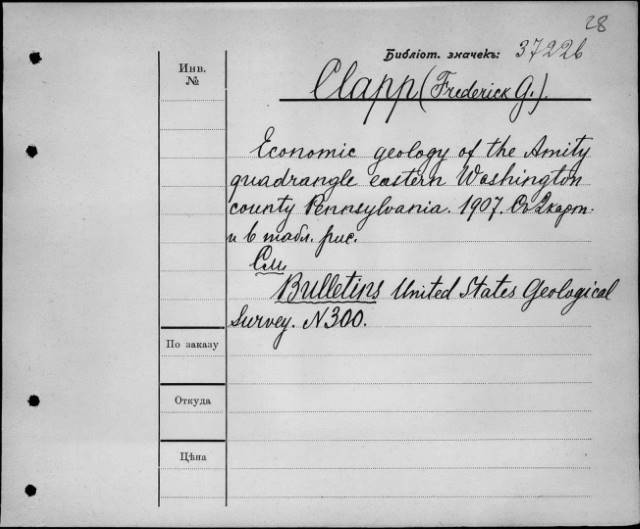 28
Библіот. значекъ: 37226
Инв.
№
Clapp (Frederick G.).
Economic geology of the Amity
quadrangle eastern Washington
county Pennsylvania. 1907. Съ 2 карт.
и 6 табл. рис.
См.
Bulletins United States Geological
Survey. N 300.
По заказу
Откуда
Цѣна